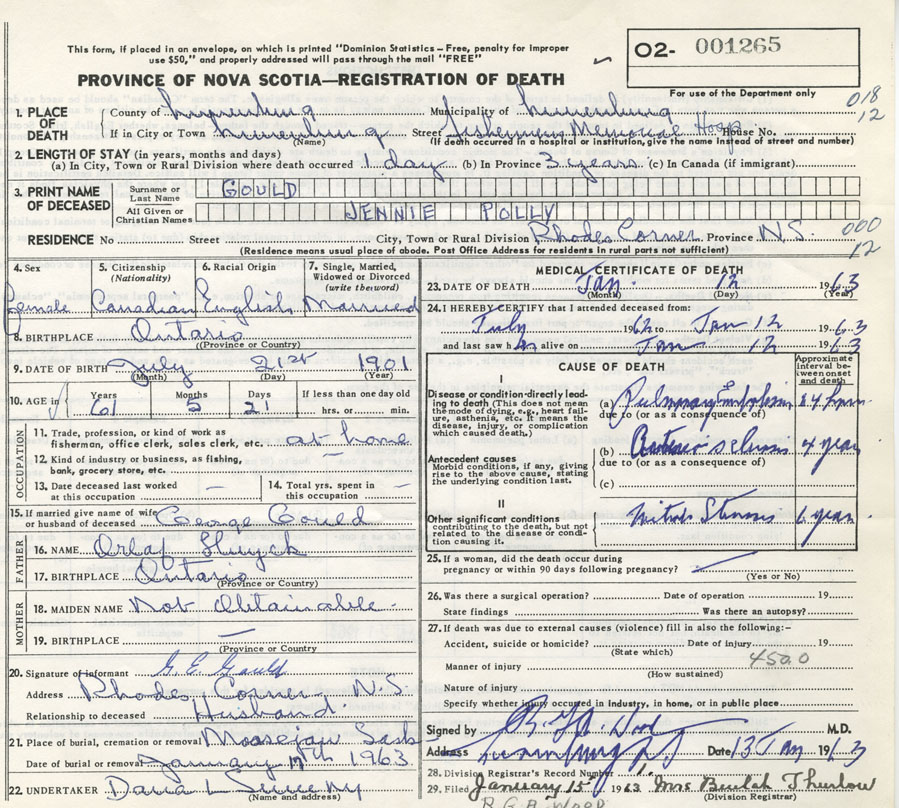 This form, if placed in an envelope, on which is printed "Dominion Statistics—Free, penalty for improper
use $50," and properly addressed will pass through the mail "FREE"
O2- 001265
For use of the Department only
PROVINCE OF NOVA SCOTIA—REGISTRATION OF DEATH
018
12
1. PLACE OF DEATH
County of Lunenburg Municipality of Lunenburg
If in City or Town Lunenburg Street Fishermens Memorial Hosp House No.
(Name) (If death occurred in a hospital or institution, give the name instead of street and number)
2. LENGTH OF STAY (in years, months and days)
(a) In City, Town or Rural Division where death occurred 1 day (b) In Province 3 years (c) In Canada (if immigrant)
3. PRINT NAME OF DECEASED
Surname or Last Name GOULD
All Given or Christian Names JENNIE POLLY
RESIDENCE No Street City, Town or Rural Division Rhodes Corner Province N.S.
(Residence means usual place of abode. Post Office Address for residents in rural parts not sufficient)
000
12
4. Sex 5. Citizenship (Nationality) 6. Racial Origin 7. Single, Married, Widowed or Divorced (write the word)
Female Canadian English Married
8. BIRTHPLACE Ontario
(Province or Country)
9. DATE OF BIRTH July 21st 1901
(Month) (Day) (Year)
10. AGE in Years Months Days If less than one day old
61 5 21 hrs. or min.
OCCUPATION
11. Trade, profession, or kind of work as
fisherman, office clerk, sales clerk, etc. at home
12. Kind of industry or business, as fishing,
bank, grocery store, etc. —
13. Date deceased last worked at this occupation — 14. Total yrs. spent in this occupation —
15. If married give name of wife or husband of deceased George Gould
FATHER
16. NAME Orlaf
17. BIRTHPLACE Ontario
(Province or Country)
MOTHER
18. MAIDEN NAME Not Obtainable
19. BIRTHPLACE —
(Province or Country
20. Signature of informant G. E. Gould
Address Rhodes Corner, N.S.
Relationship to deceased Husband.
21. Place of burial, cremation or removal Moosejaw Sask
Date of burial or removal January 17th 1963
22. UNDERTAKER
(Name and address)
MEDICAL CERTIFICATE OF DEATH
23. DATE OF DEATH Jan. 12 1963
(Month) (Day) (Year)
24. I HEREBY CERTIFY that I attended deceased from:
July 1962 to Jan 12 1963
and last saw h alive on Jan 12 1963
CAUSE OF DEATH
Approximate interval between onset and death
I
Disease or condition directly leading to death (This does not mean the mode of dying, e.g., heart failure, asthenia, etc. It means the disease, injury, or complication which caused death.)
(a) Pulmonary Embolism 24 hours
due to (or as a consequence of)
Antecedent causes
Morbid conditions, if any, giving rise to the above cause, stating the underlying condition last.
(b) 4 years
due to (or as a consequence of)
(c)
II
Other significant conditions
contributing to the death, but not related to the disease or condition causing it.
Mitral Stenosis 6 years
25. If a woman, did the death occur during
pregnancy or within 90 days following pregnancy?
(Yes or No)
26. Was there a surgical operation? Date of operation 19
State findings Was there an autopsy?
27. If death was due to external causes (violence) fill in also the following:—
Accident, suicide or homicide? Date of injury 19
(State which)
450.0
Manner of injury
(How sustained)
Nature of injury
Specify whether injury occurred in Industry, in home, or in public place
Signed by R. G. A. Wood M.D.
Address Lunenburg NS Date 13 Jan 1963
28. Division Registrar's Record Number 1.
29. Filed January 15 1963 Mrs Beulah Thurlow
(Division Registrar)
R.G.A. WOOD